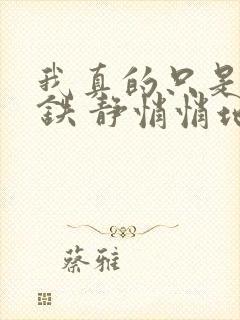 我真的只是
鉄静悄悄地
蔡雅